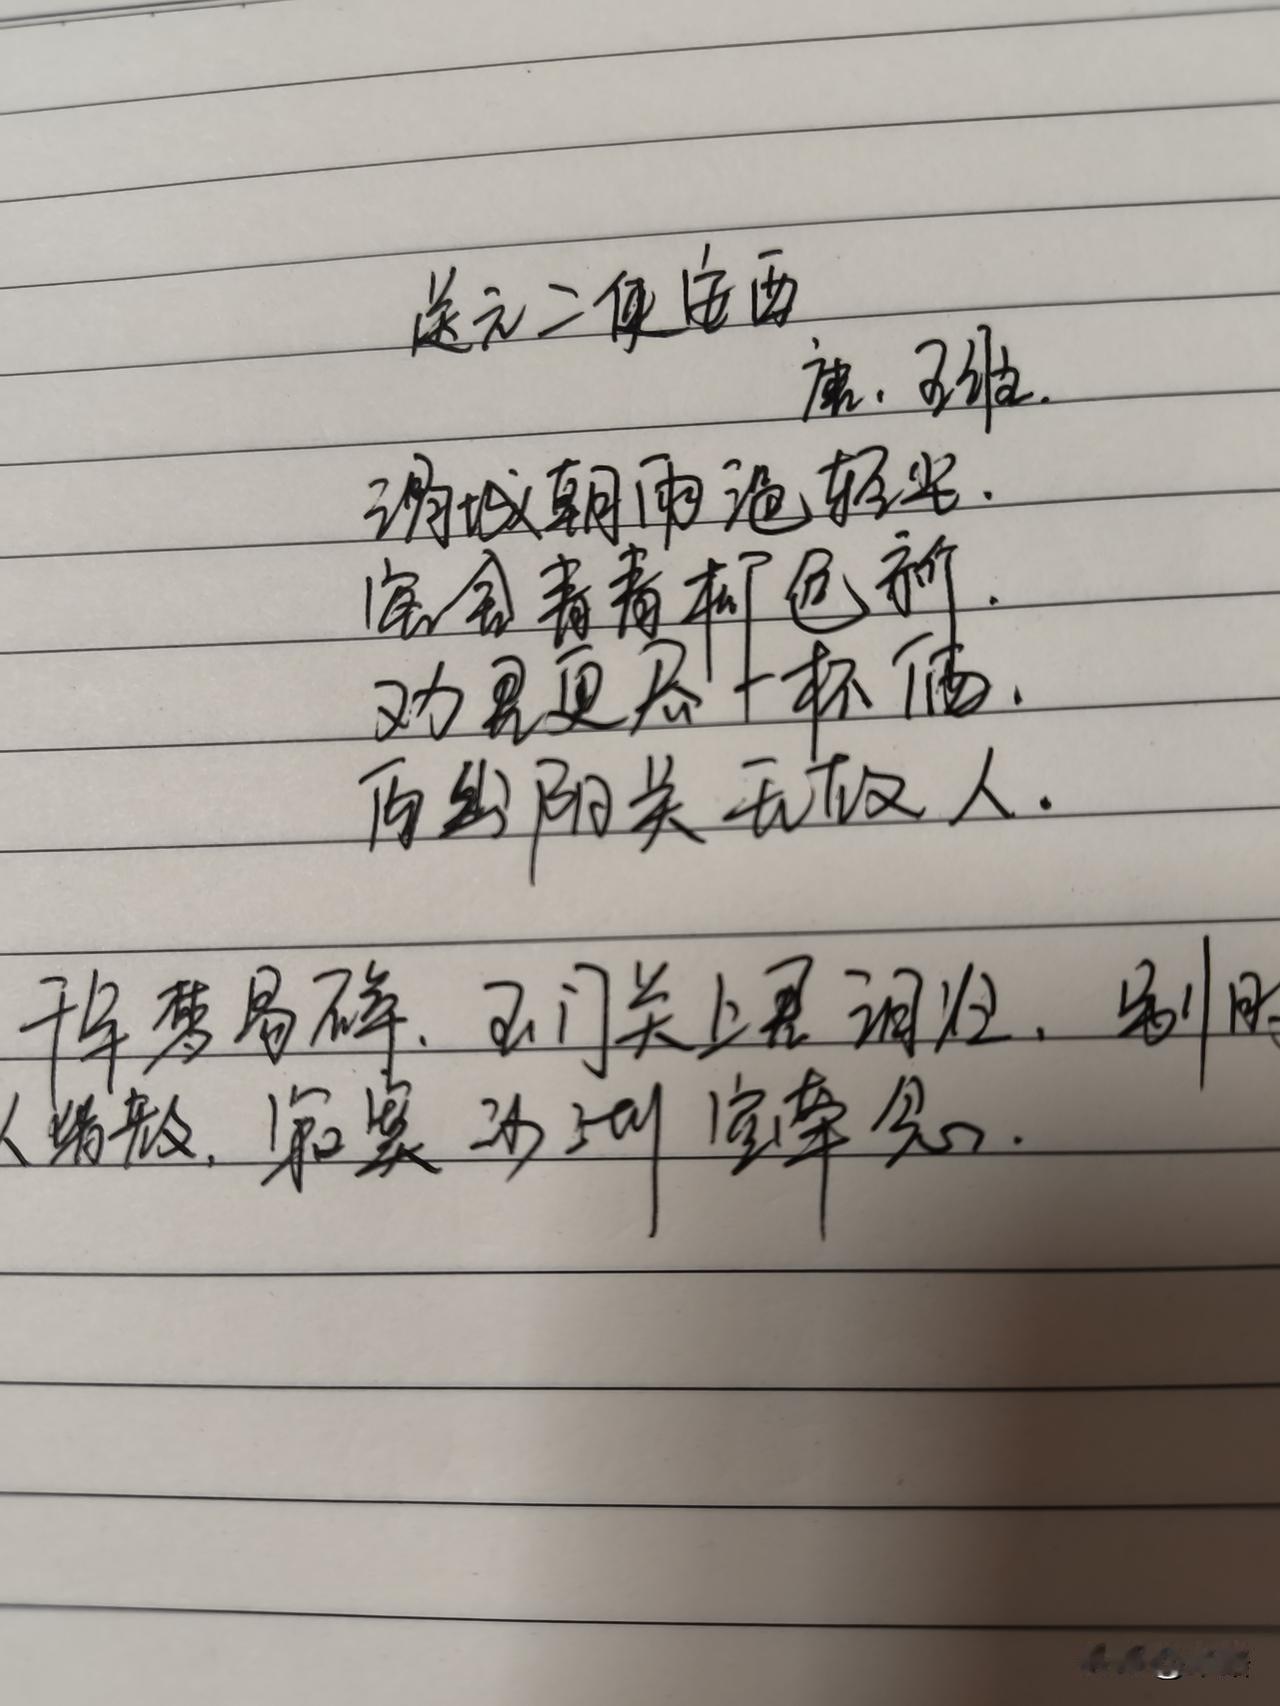 送元二使安西
唐.王维.
渭城朝雨浥轻尘.
客舍青青柳色新.
劝君更尽一杯酒.
西出阳关无故人.
千年梦易碎.玉门关上君调归.别时
人消散.寂寞沙洲空牵念.